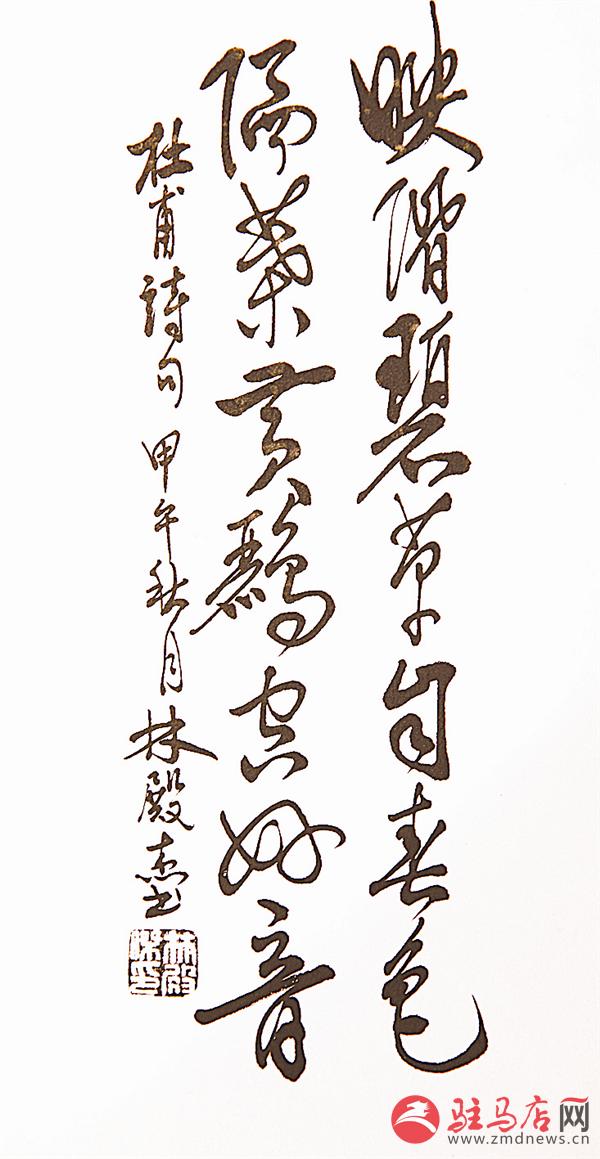 映階碧草自春色
隔葉黃鸝空好音
杜甫詩句 甲午秋月 林殿杰书
驻马店网
www.zmdnews.cn